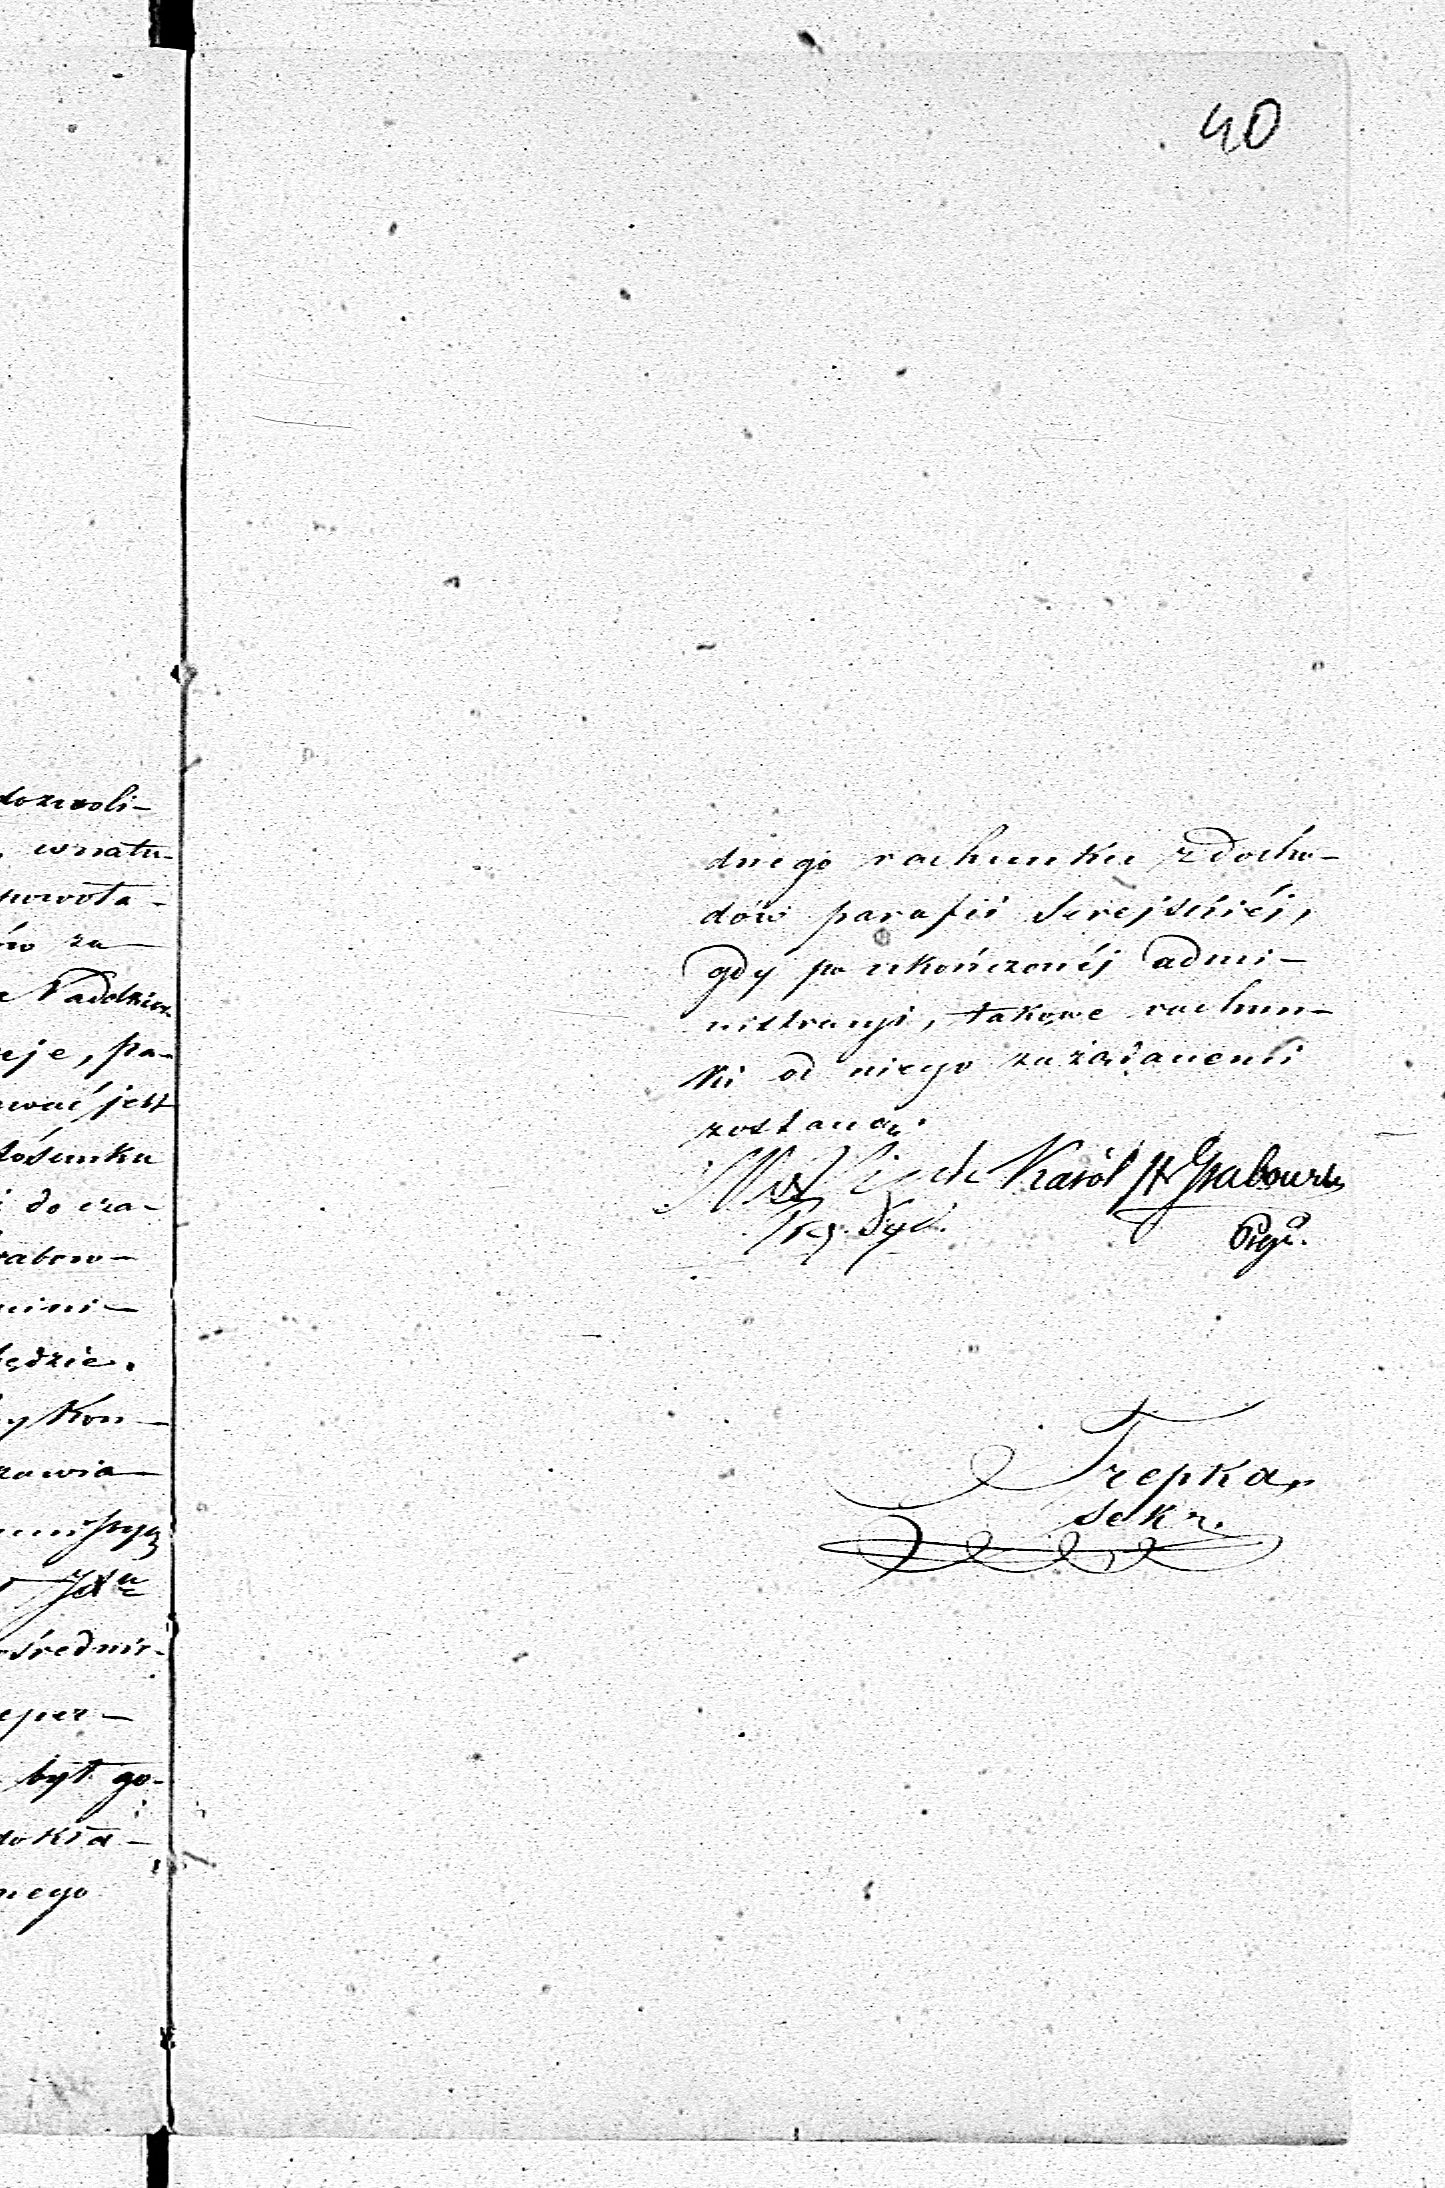 40
dozwoli-
wnatu-
powoła-
ów za
Nadolskiw
eje, pa-
wać jest
tósunku
do cza-
rabow-
mini-
będzie.
y Kon-
zawia-
JXu
ośrednic-
eper-
być go-
dokła-
nego
dnego rachunku z docho-
dów parafii Serejskiéj,
gdy po ukończonéj admi-
nistracyi, takowe rachun-
ki od niego zażądanemi
zostaną.
Karól H Grabowski
Prez. Syd.
Trepka,
sekr.